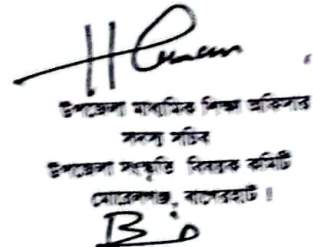 উপজেলা মাধ্যমিক শিক্ষা অফিসার
সদস্য সচিব
উপজেলা সংস্কৃতি বিষয়ক কমিটি
মোড়েলগঞ্জ, বাগেরহাট।